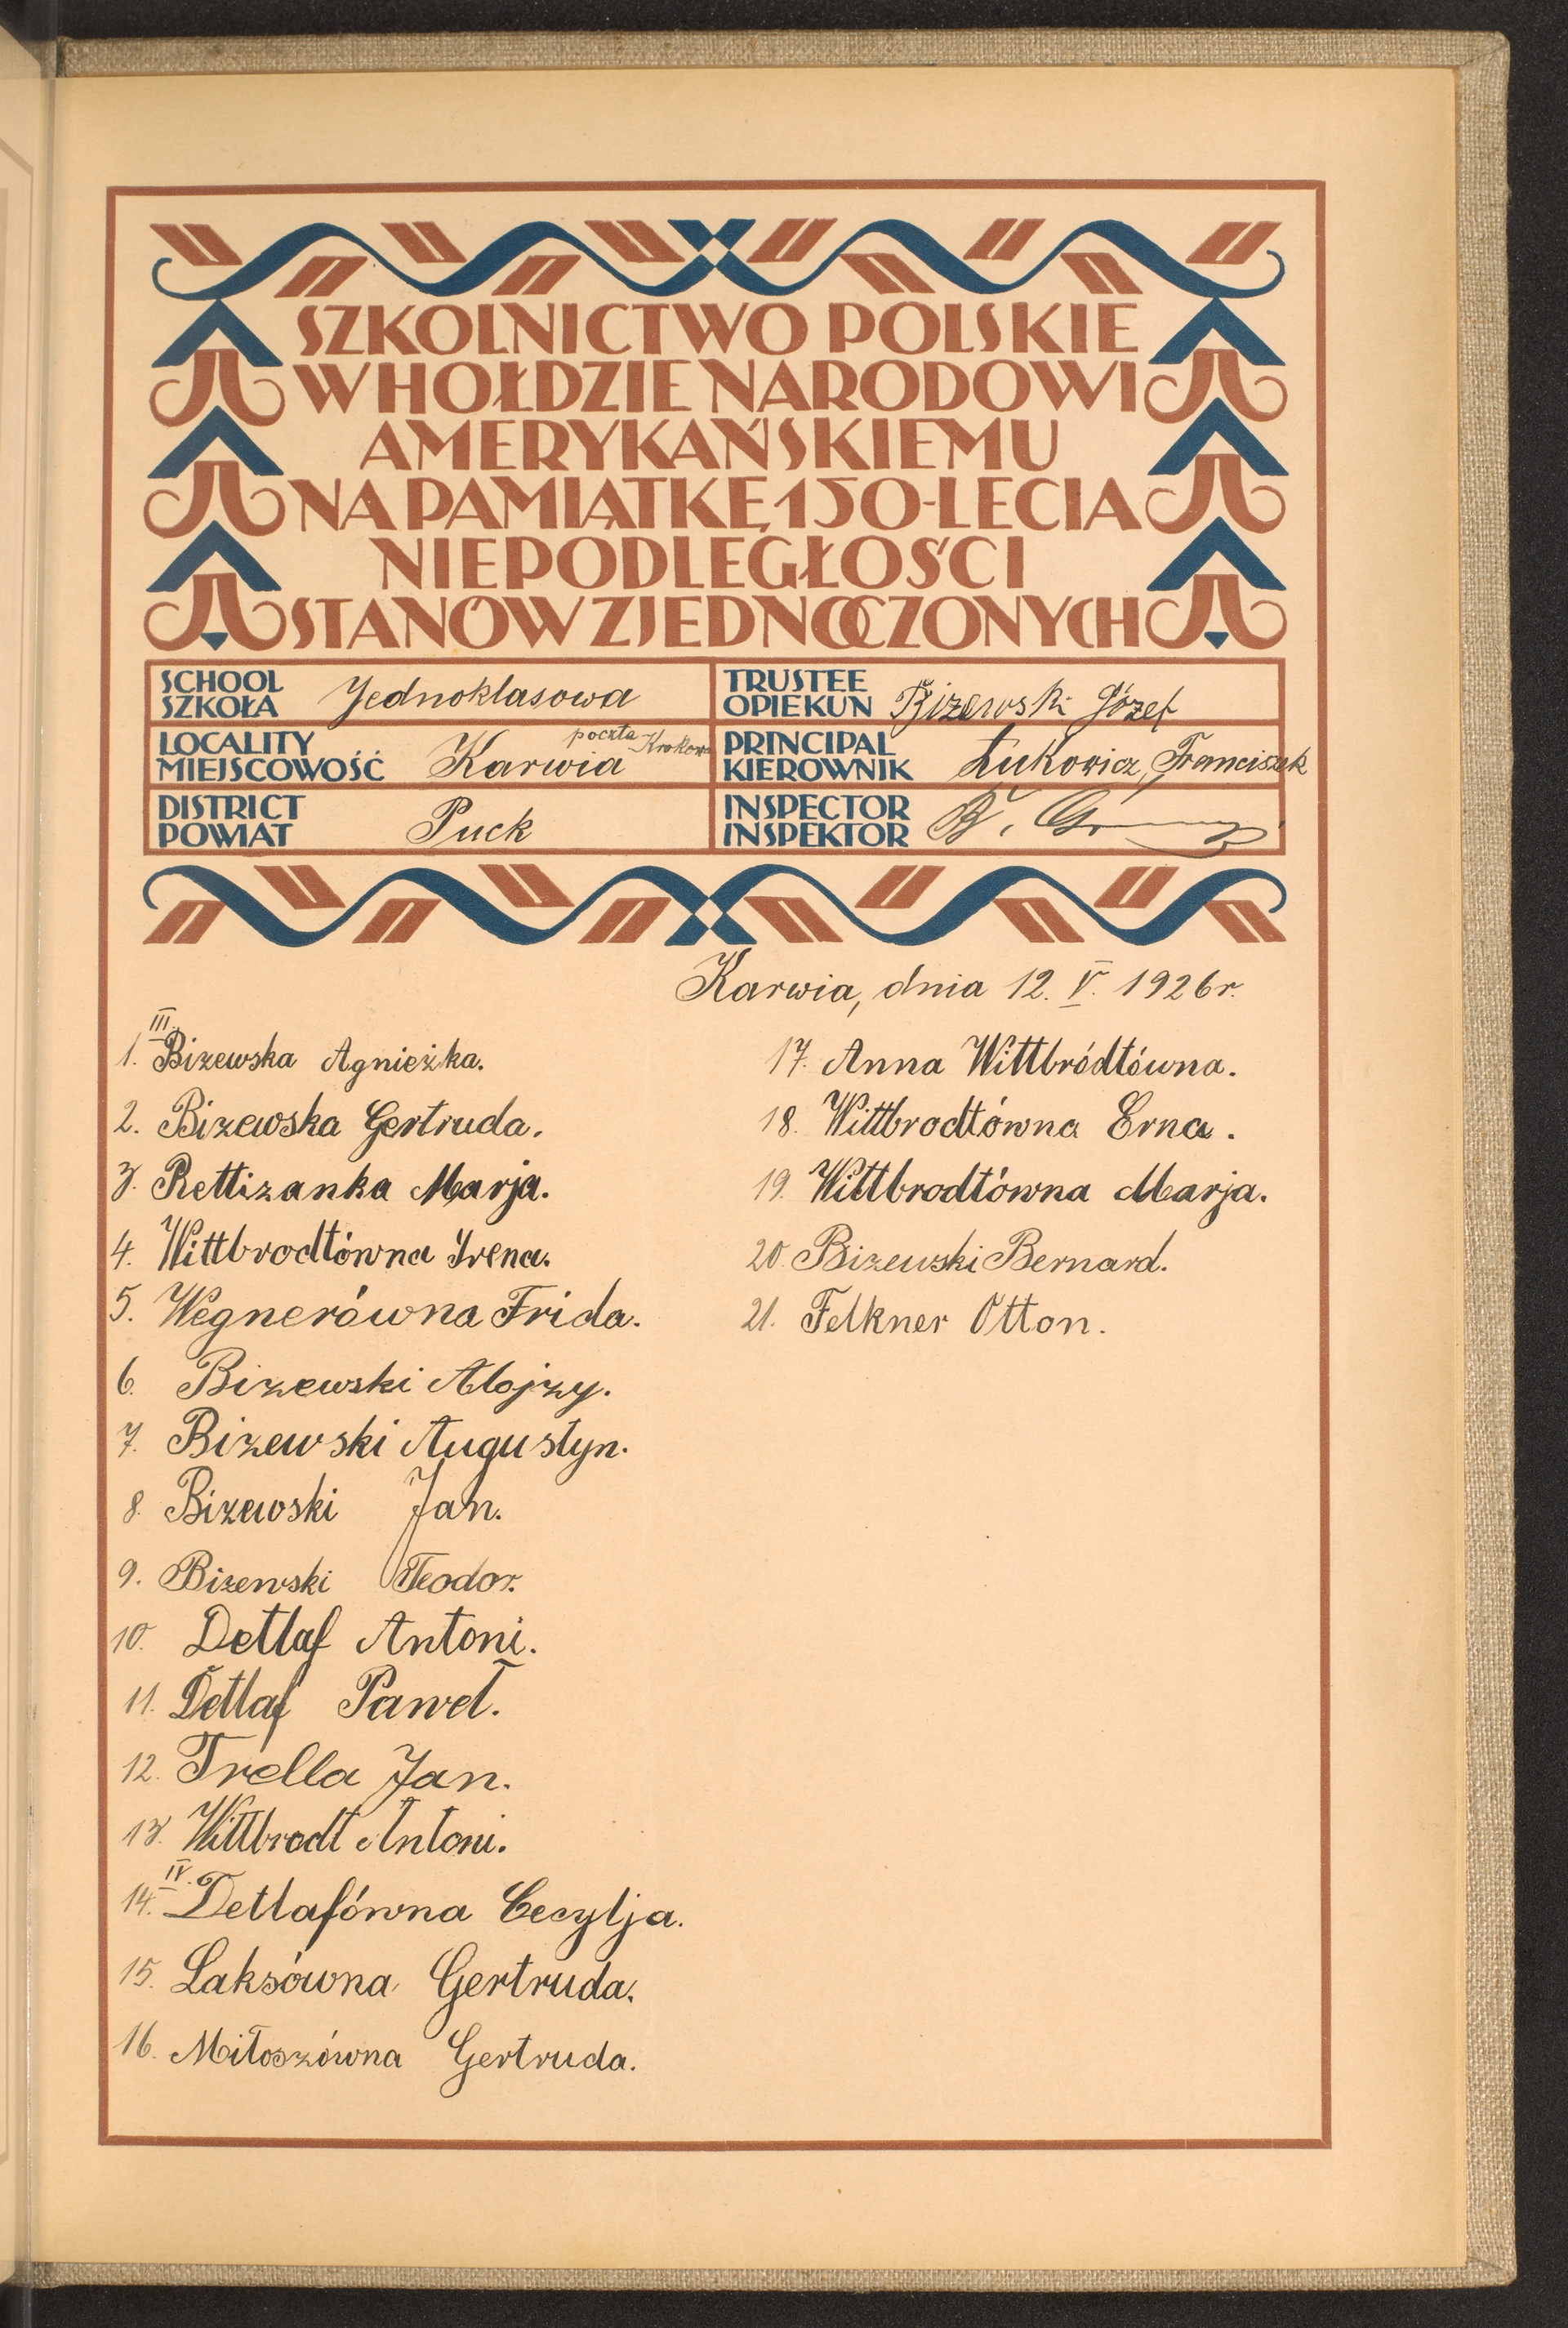 SZKOLNICTWO POLSKIE
W HOŁDZIE NARODOWI
AMERYKAŃSKIEMU
NA PAMIĄTKĘ 150-LECIA
NIEPODLEGŁOŚCI
STANÓW ZJEDNOCZONYCH
SCHOOL
SZKOŁA
Jednoklasowa
TRUSTEE
OPIEKUN
Bizewski Józef
LOCALITY
MIEJSCOWOŚĆ
Karwia
poczta Krokowa
PRINCIPAL
KIEROWNIK
Łukowicz, Franciszek
DISTRICT
POWIAT
Puck
INSPECTOR
INSPEKTOR
Karwia, dnia 12. V. 1926 r.
III.
1. Bizewska Agnieżka.
2. Bizewska Gertruda.
3. Rettizanka Marja.
4. Wittbrodtówna Irena.
5. Wegnerówna Frida.
6. Bizewski Alojzy.
7. Bizewski Augustyn.
8. Bizewski Jan.
9. Bizewski Teodor.
10. Detlaf Antoni.
11. Detlaf Paweł.
12. Trella Jan.
13. Wittbrodt Antoni.
IV.
14. Detlafówna Cecylja.
15. Laksówna Gertruda.
16. Miłoszówna Gertruda.
17. Anna Wittbródtówna.
18. Wittbrodtówna Erna.
19. Wittbrodtówna Marja.
20. Bizewski Bernard.
21. Felkner Otton.